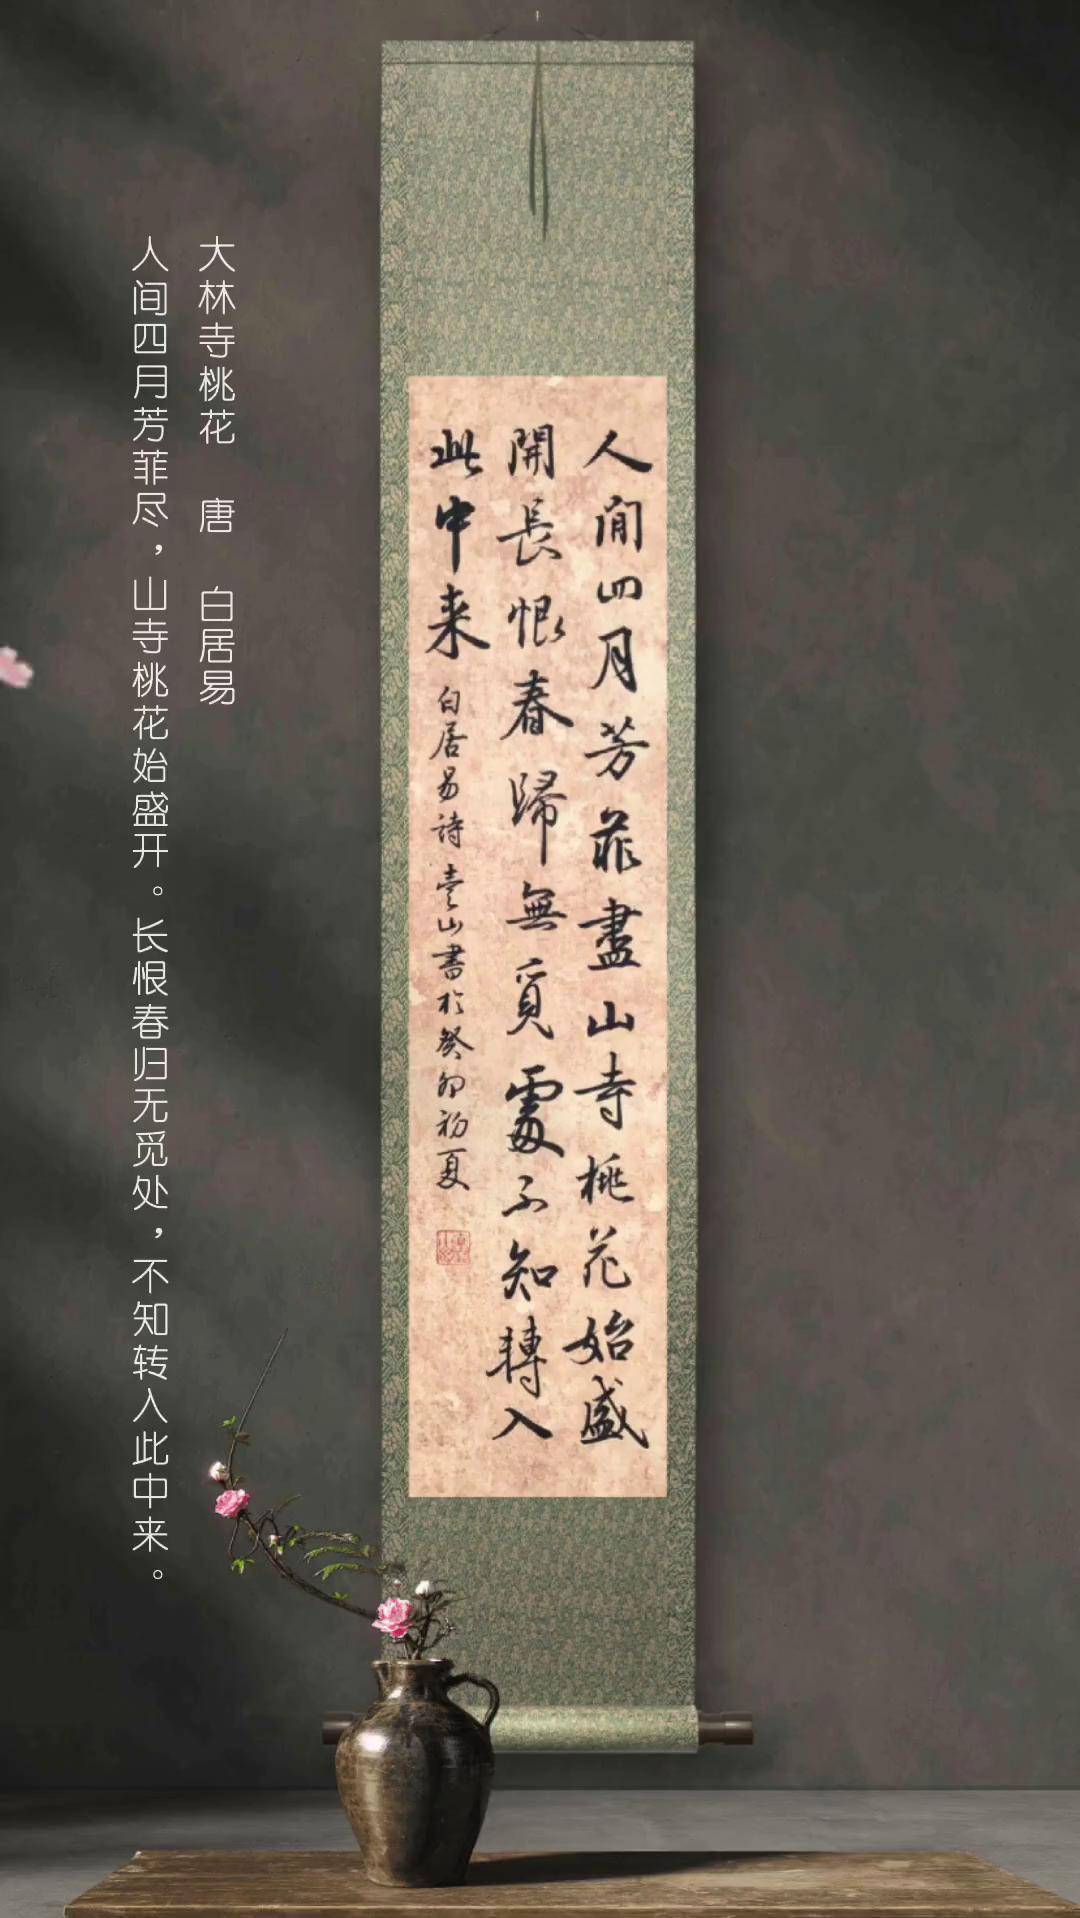 大林寺桃花 唐 白居易
人间四月芳菲尽，山寺桃花始盛开。长恨春归无觅处，不知转入此中来。
人間四月芳菲盡山寺桃花始盛
開長恨春歸無覓處不知轉入
此中来 白居易诗 壹山書於癸卯初夏